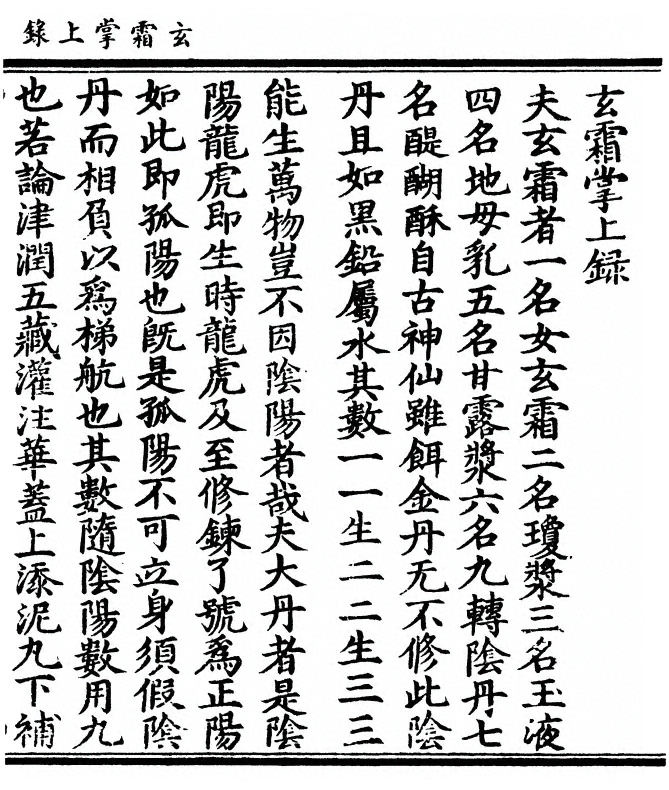 玄霜掌上錄
玄霜掌上録
夫玄霜者一名女玄霜二名瓊漿三名玉液
四名地母乳五名甘露漿六名九轉陰丹七
名醍醐酥自古神仙雖餌金丹无不修此陰
丹且如黒鉛屬水其數一一生二二生三三
能生萬物豈不因陰陽者哉夫大丹者是陰
陽龍虎即生時龍虎及至修鍊了號爲正陽
如此即孤陽也旣是孤陽不可立身須假陰
丹而相負以爲梯航也其數隨陰陽數用九
也若論津潤五藏灌注華蓋上添泥丸下補